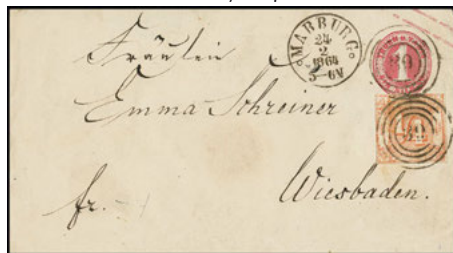 MARBURG
24
2
1864
5-6N
Fräulein
Emma Schreiner
Wiesbaden.
fr.